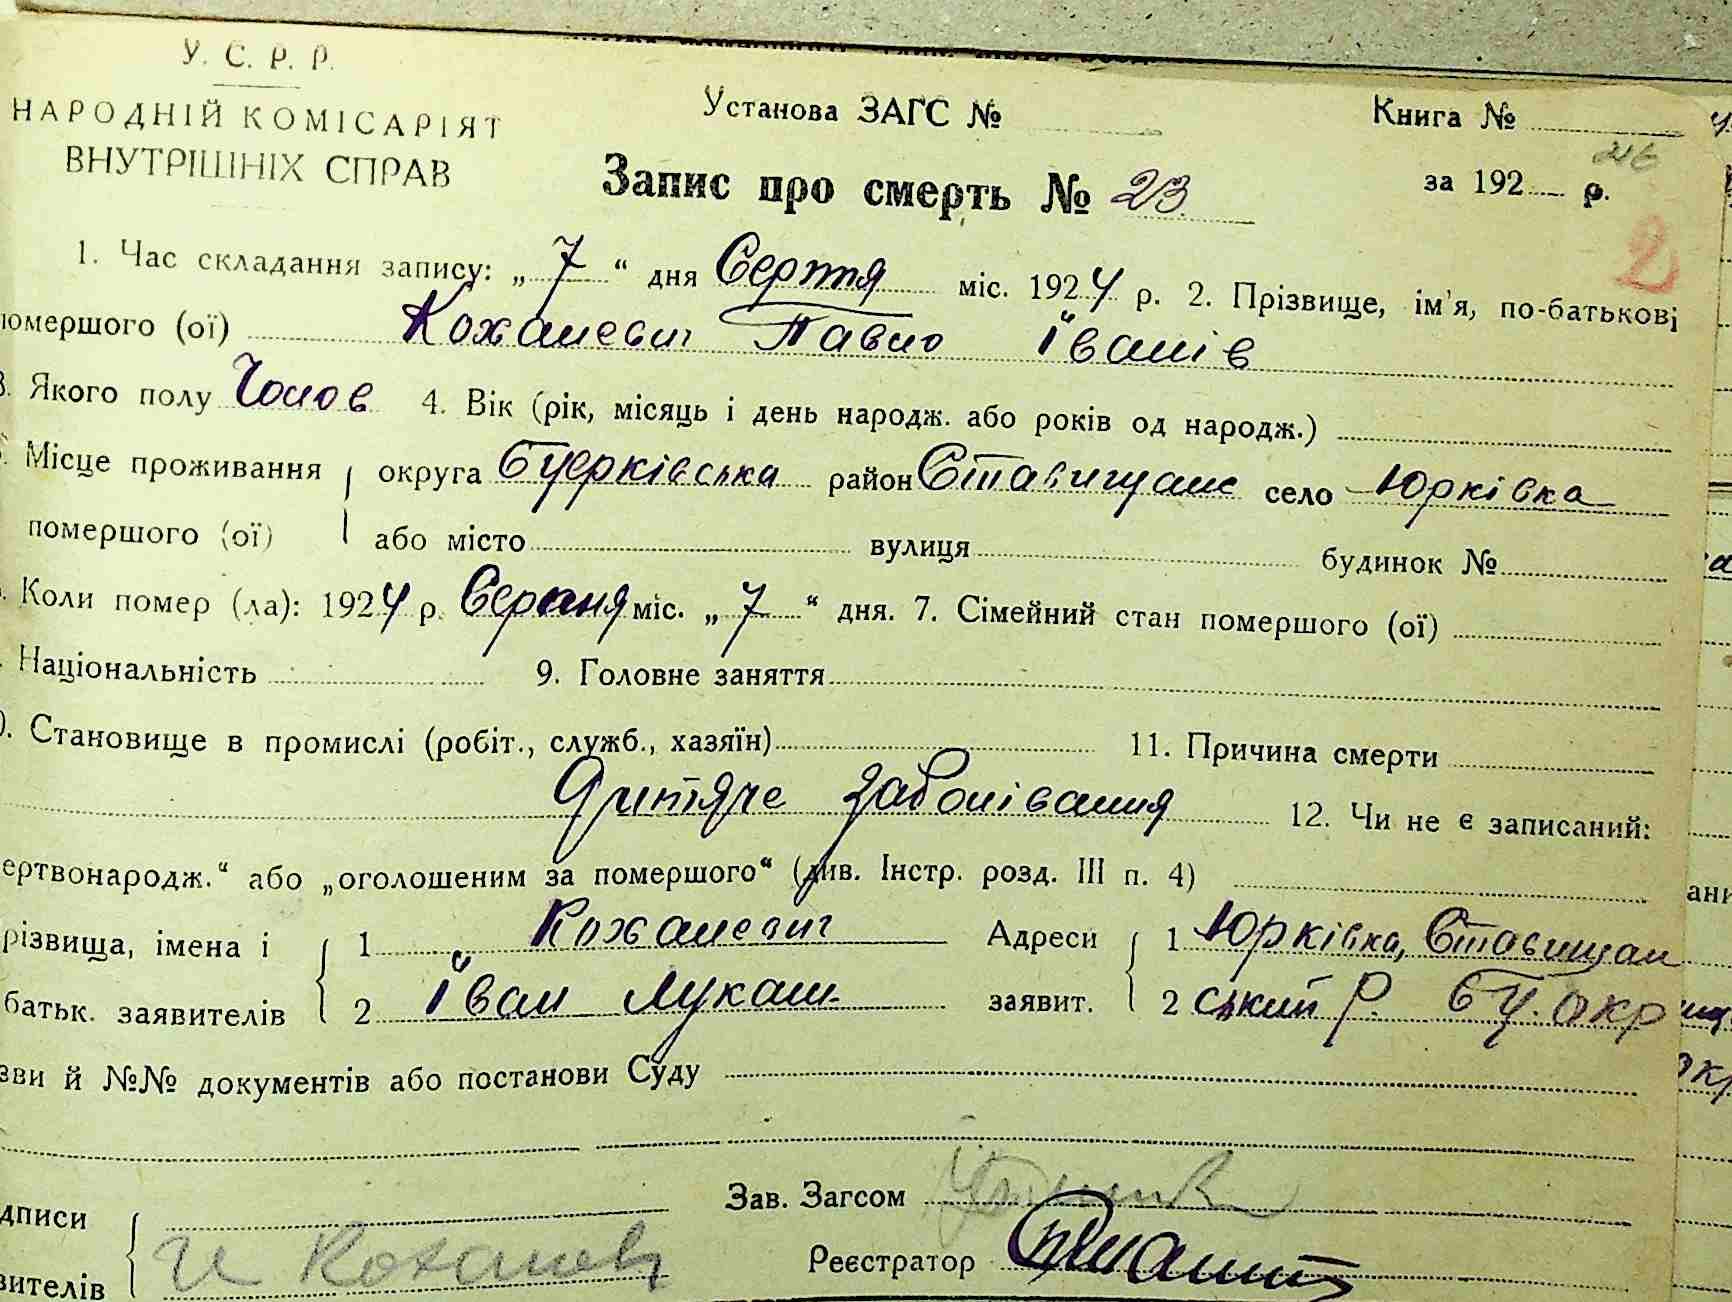 У. С. Р. Р.
НАРОДНІЙ КОМІСАРІЯТ
ВНУТРІШНІХ СПРАВ
Установа ЗАГС №
Книга №
216
Запис про смерть № 23
за 192 р.
2
1. Час складання запису: „ 7 “ дня Серпня міс. 1924 р. 2. Прізвище, ім'я, по-батькові
помершого (ої) Коханевич Павло Іванів
3. Якого полу Чолов 4. Вік (рік, місяць і день народж. або років од народж.)
Місце проживання округа БЦерківська район Ставищанс село Юрківка
помершого (ої) або місто вулиця будинок №
Коли помер (ла): 1924 р. Серпня міс. „ 7 “ дня. 7. Сімейний стан помершого (ої)
Національність 9. Головне заняття
0. Становище в промислі (робіт., служб., хазяїн) 11. Причина смерти
Дитяче заболівання 12. Чи не є записаний:
ертвонародж.“ або „оголошеним за помершого“ (див. Інстр. розд. III п. 4)
різвища, імена і 1 Коханевич Адреси 1 Юрківка, Ставищан
батьк. заявителів 2 Іван Лукаш. заявит. 2 ський Р. БЦ. окр
зви й №№ документів або постанови Суду
Зав. Загсом
дписи
вителів И Коханов Реєстратор